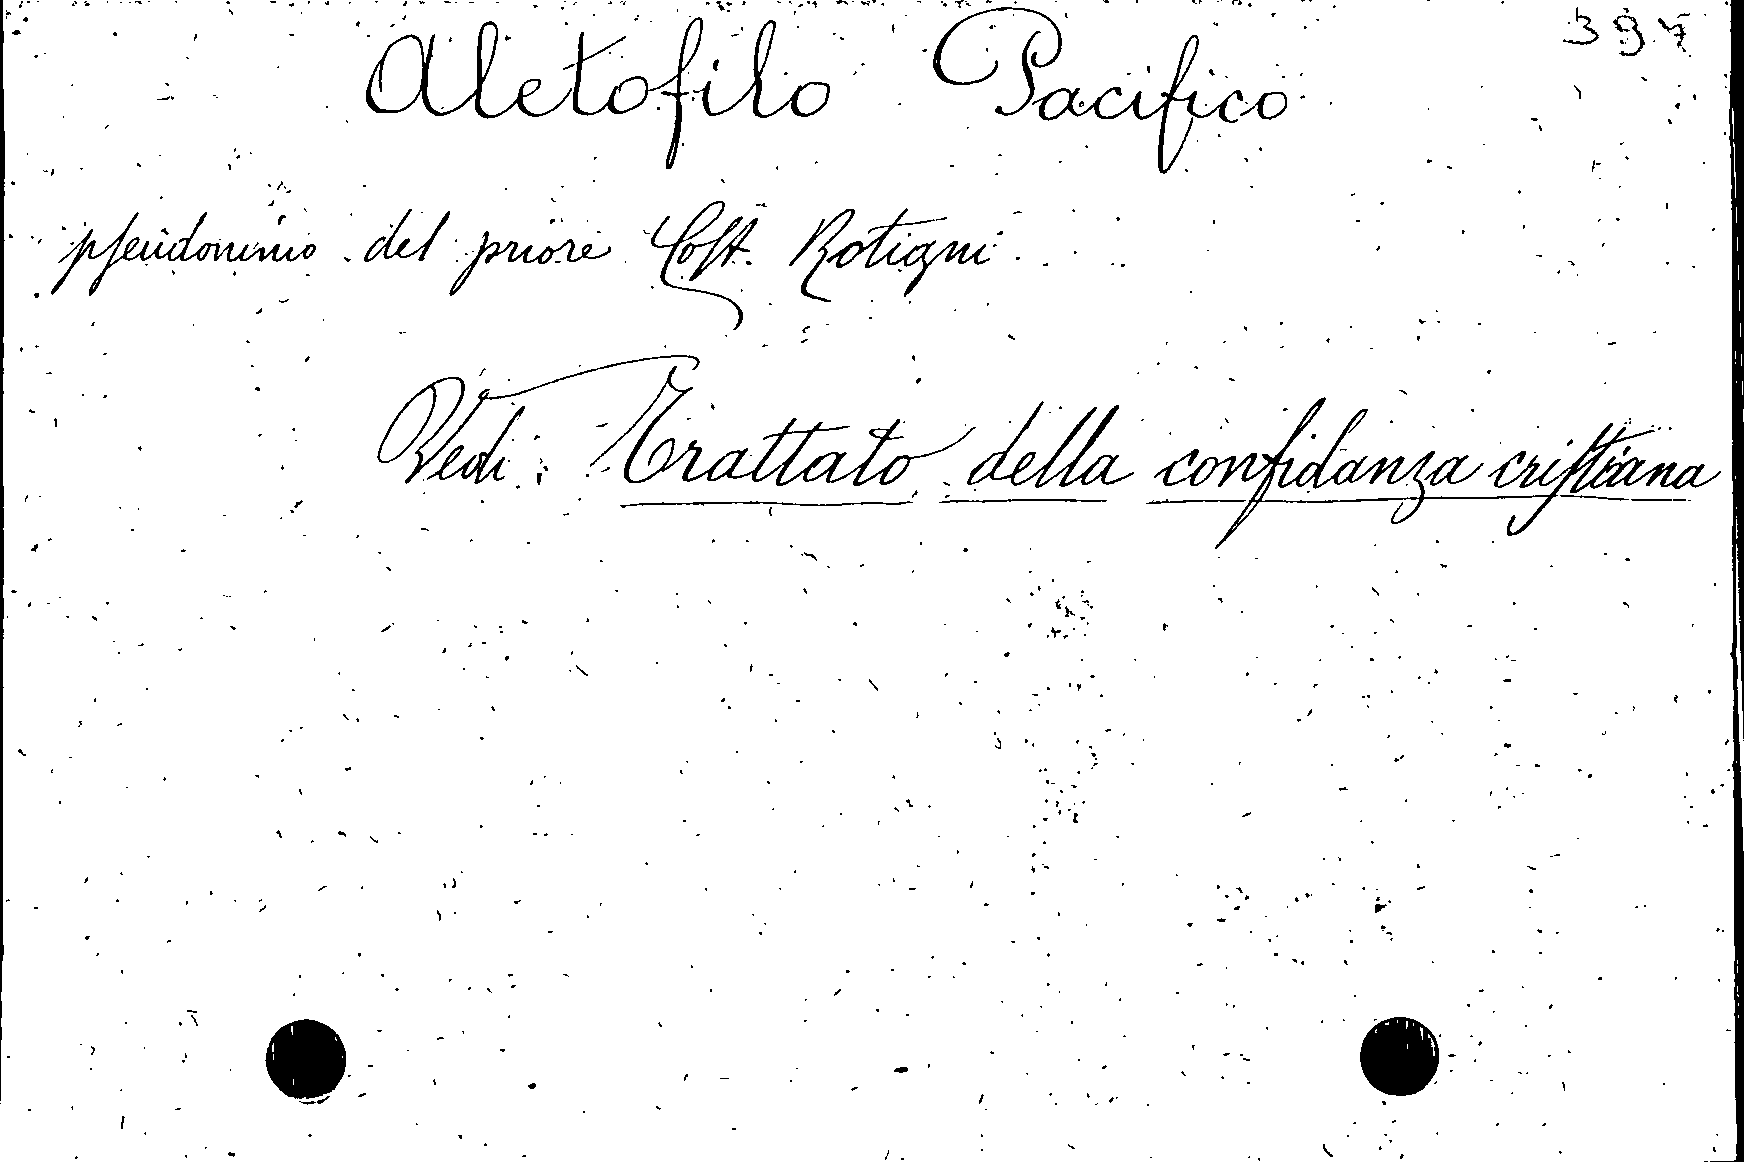 397
Aletofilo Pacifico
pseudonimo del priore Cost. Rotigni
Vedi: Trattato della confidanza cristiana